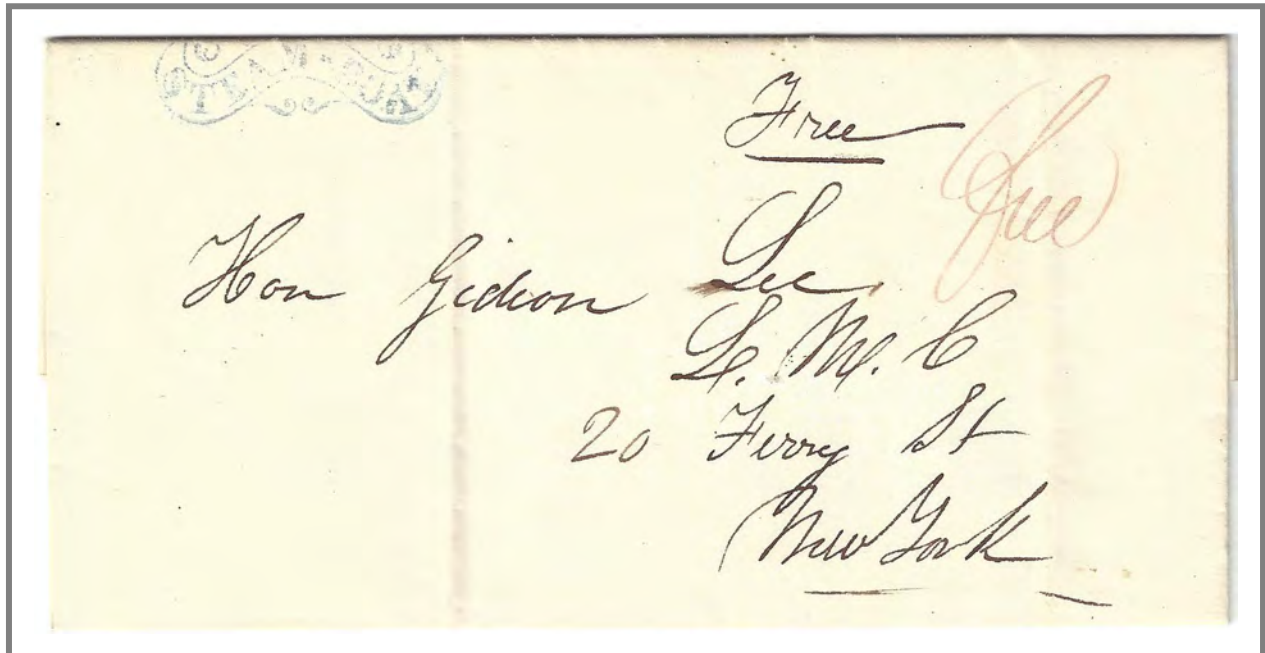 STEAM-BOAT
Free
Free
Hon Gideon Lee
L. M. C
20 Ferry St
New York